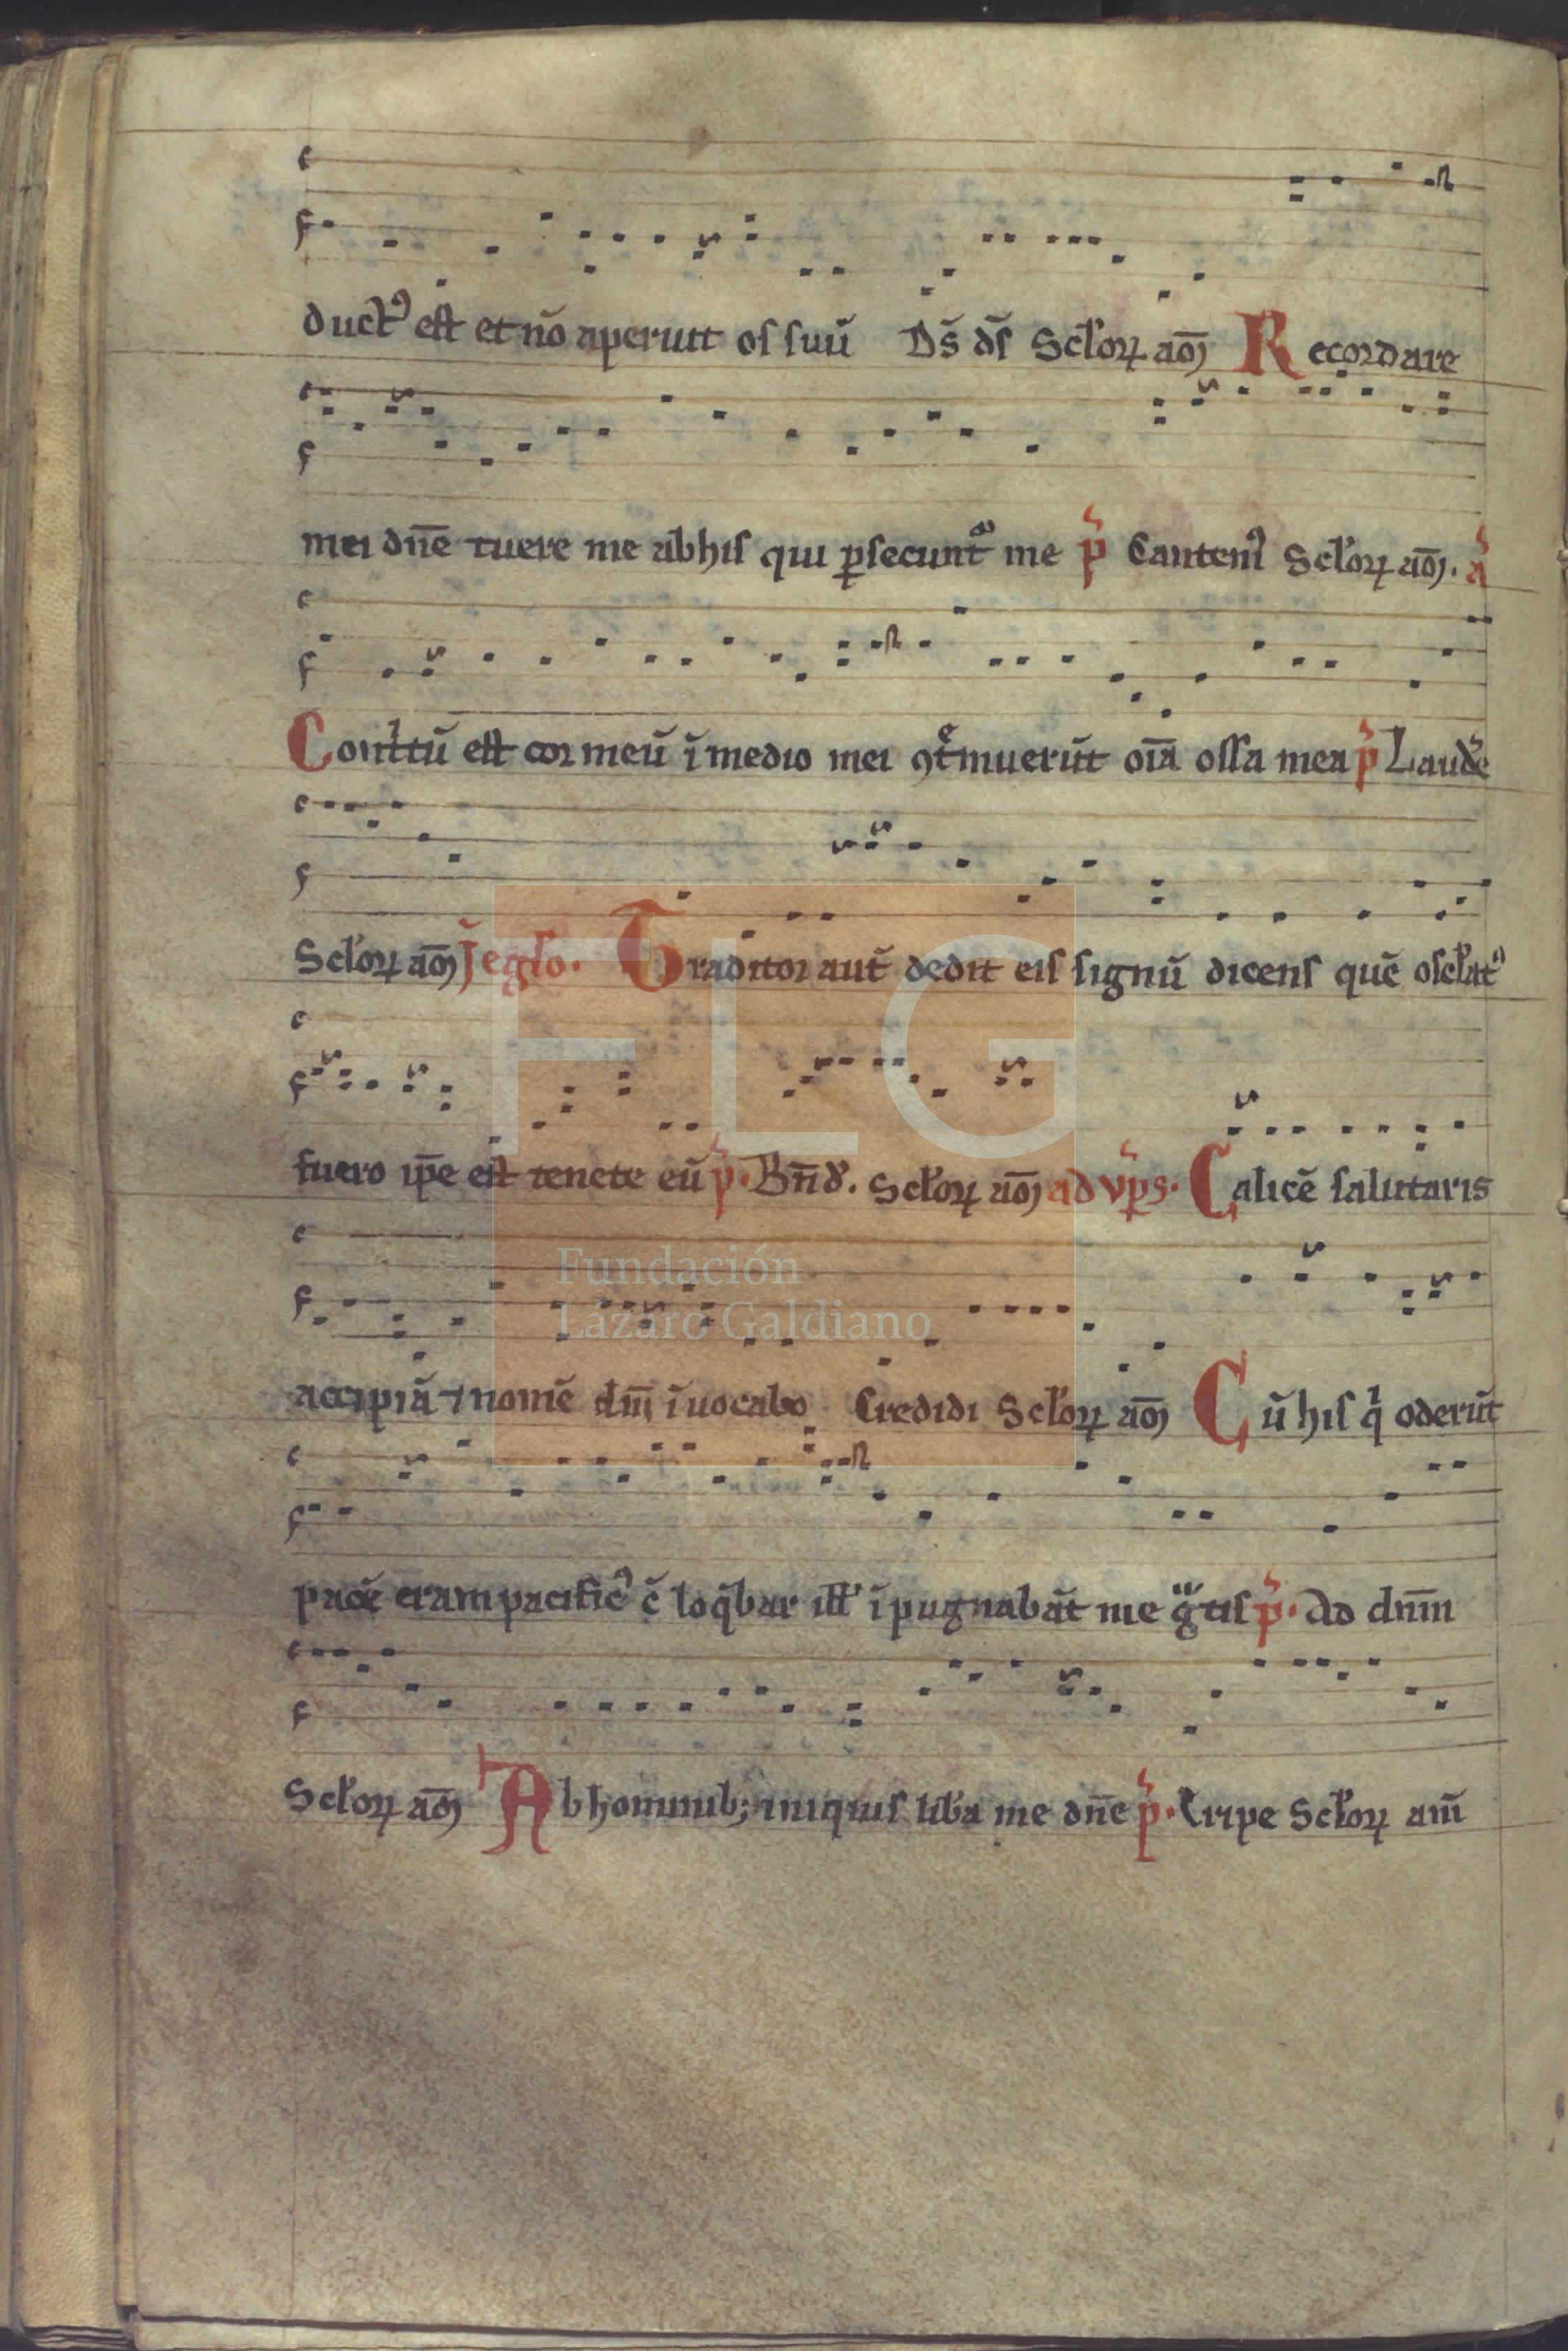 duct᷒ est et nō aperuit os suū Dš dš Sclꝝ am̄ Recordare
mei dn̄e tuere me ab his qui ꝑsecunt᷑ me p̃ Cantem᷒ Sclꝝ am̄. ã
Contⁱtū est cor meū ī medio mei ꝯtͤmuerūt oīa ossa mea p̃ Laudͤ
Sclꝝ am̄ J̃ eglo. Traditor aut̄ dedit eis signū dicens quē osclat᷒
fuero ip̄e est tenete eū p̃. Bn̄d. Sclꝝ am̄ ad vꝑs. Calicē salutaris
accipiā ⁊ nomē dn̄i īuocabo Credidi Sclꝝ am̄ Cū his qⁱ oderūt
pacē eram pacific᷒ c̄ loq̄bar ill' īpugnabāt me gᵃtis p̃. Ad dn̄m
Sclꝝ am̄ Ab hominib; iniquis lib̄a me dn̄e p̃. Eripe Sclꝝ am̄
FLG
Fundación
Lázaro Galdiano